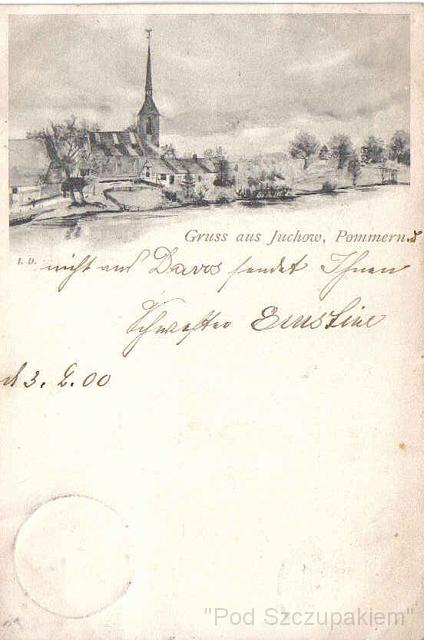 Gruss aus Juchow, Pommern.
I. D.
nicht aus Davos sendet Ihnen
Schwester Ernstine
d 3. 2. 00
"Pod Szczupakiem"